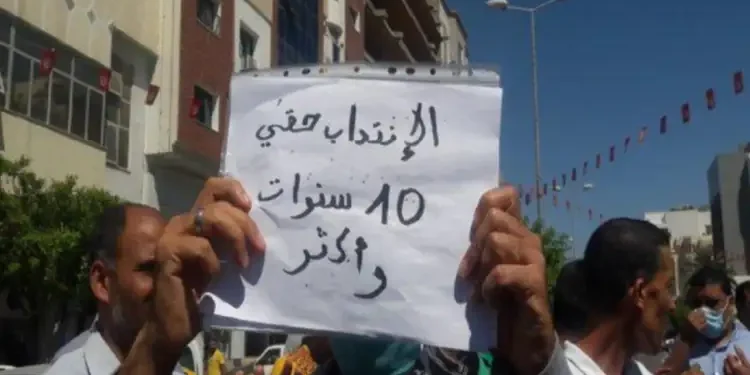 الإنتداب حقي
10 سنوات
واكثر